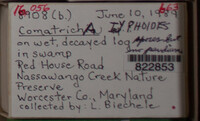 16 056 663
8908 (b.) June 10, 1989
Comatricha TYPHOIDES
on wet, decayed log
in swamp
Red House Road 822853
Nassawango Creek Nature
Preserve
Worcester Co., Maryland
collected by: L. Biechele